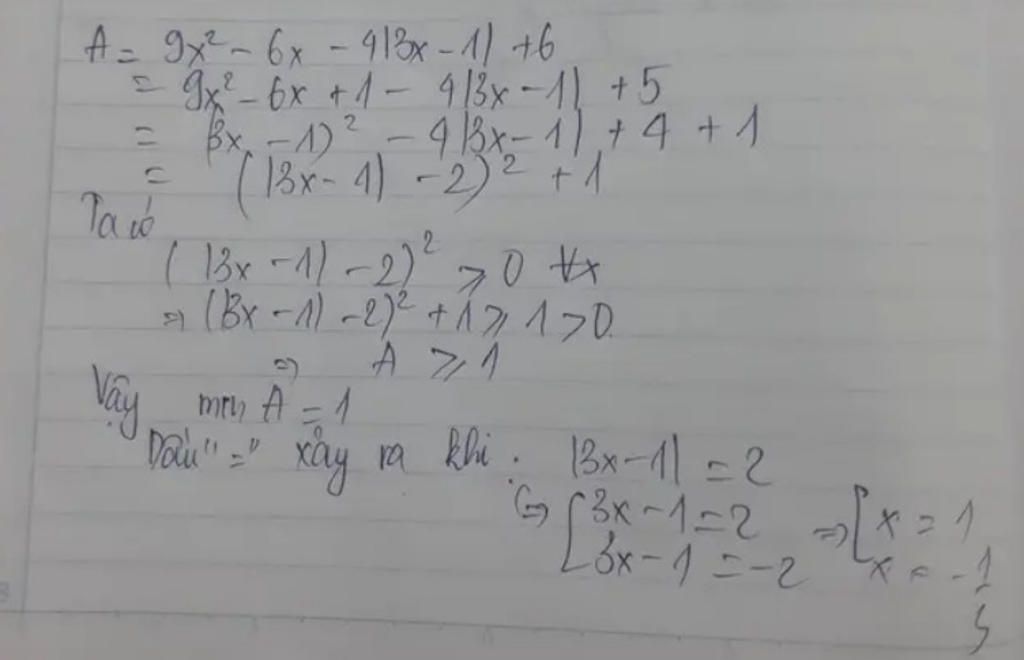 A = 9x² - 6x - 4|3x - 1| + 6
= 9x² - 6x + 1 - 4|3x - 1| + 5
= (3x - 1)² - 4|3x - 1| + 4 + 1
= (|3x - 1| - 2)² + 1
Ta có
(|3x - 1| - 2)² ≥ 0 ∀x
⇒ (|3x - 1| - 2)² + 1 ≥ 1 > 0
⇒ A ≥ 1
Vậy min A = 1
Dấu "=" xảy ra khi. |3x - 1| = 2
⇔ [ 3x - 1 = 2 ⇒ [ x = 1
3x - 1 = -2 x = -1/3